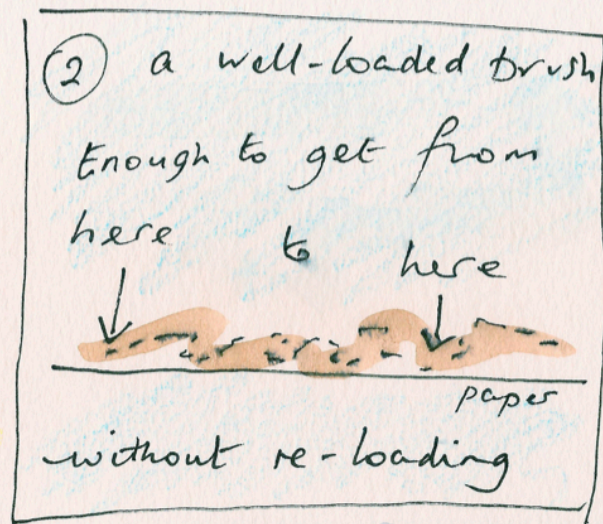 ② a well-loaded brush
Enough to get from
here to here
paper
without re-loading